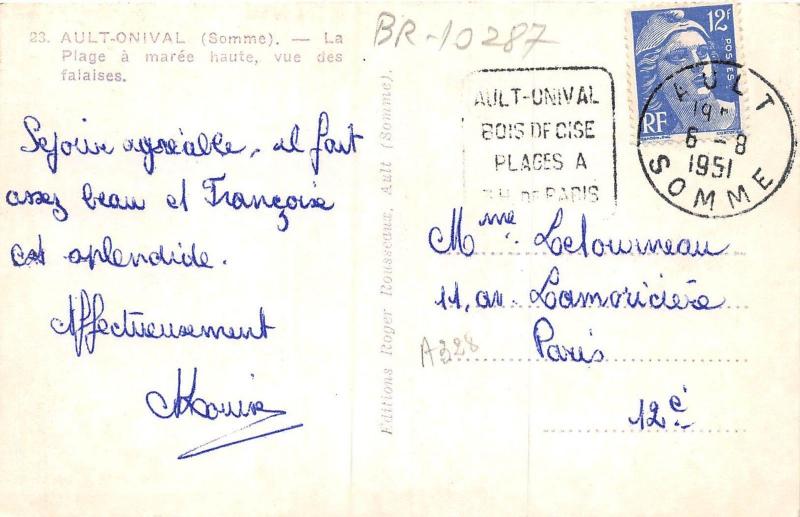 23. AULT-ONIVAL (Somme). — La
Plage à marée haute, vue des
falaises.
BR-10287
Séjour agréable, il fait
assez beau et Françoise
est splendide.
Affectueusement
AULT-ONIVAL
BOIS DE CISE
PLAGES A
DE PARIS
12F
POSTES
RF
AULT
6-8
1951
SOMME
Editions Roger Rousseaux, Ault (Somme).
Mme Letourneau
11, av. Lamoricière
Paris
12e
A328